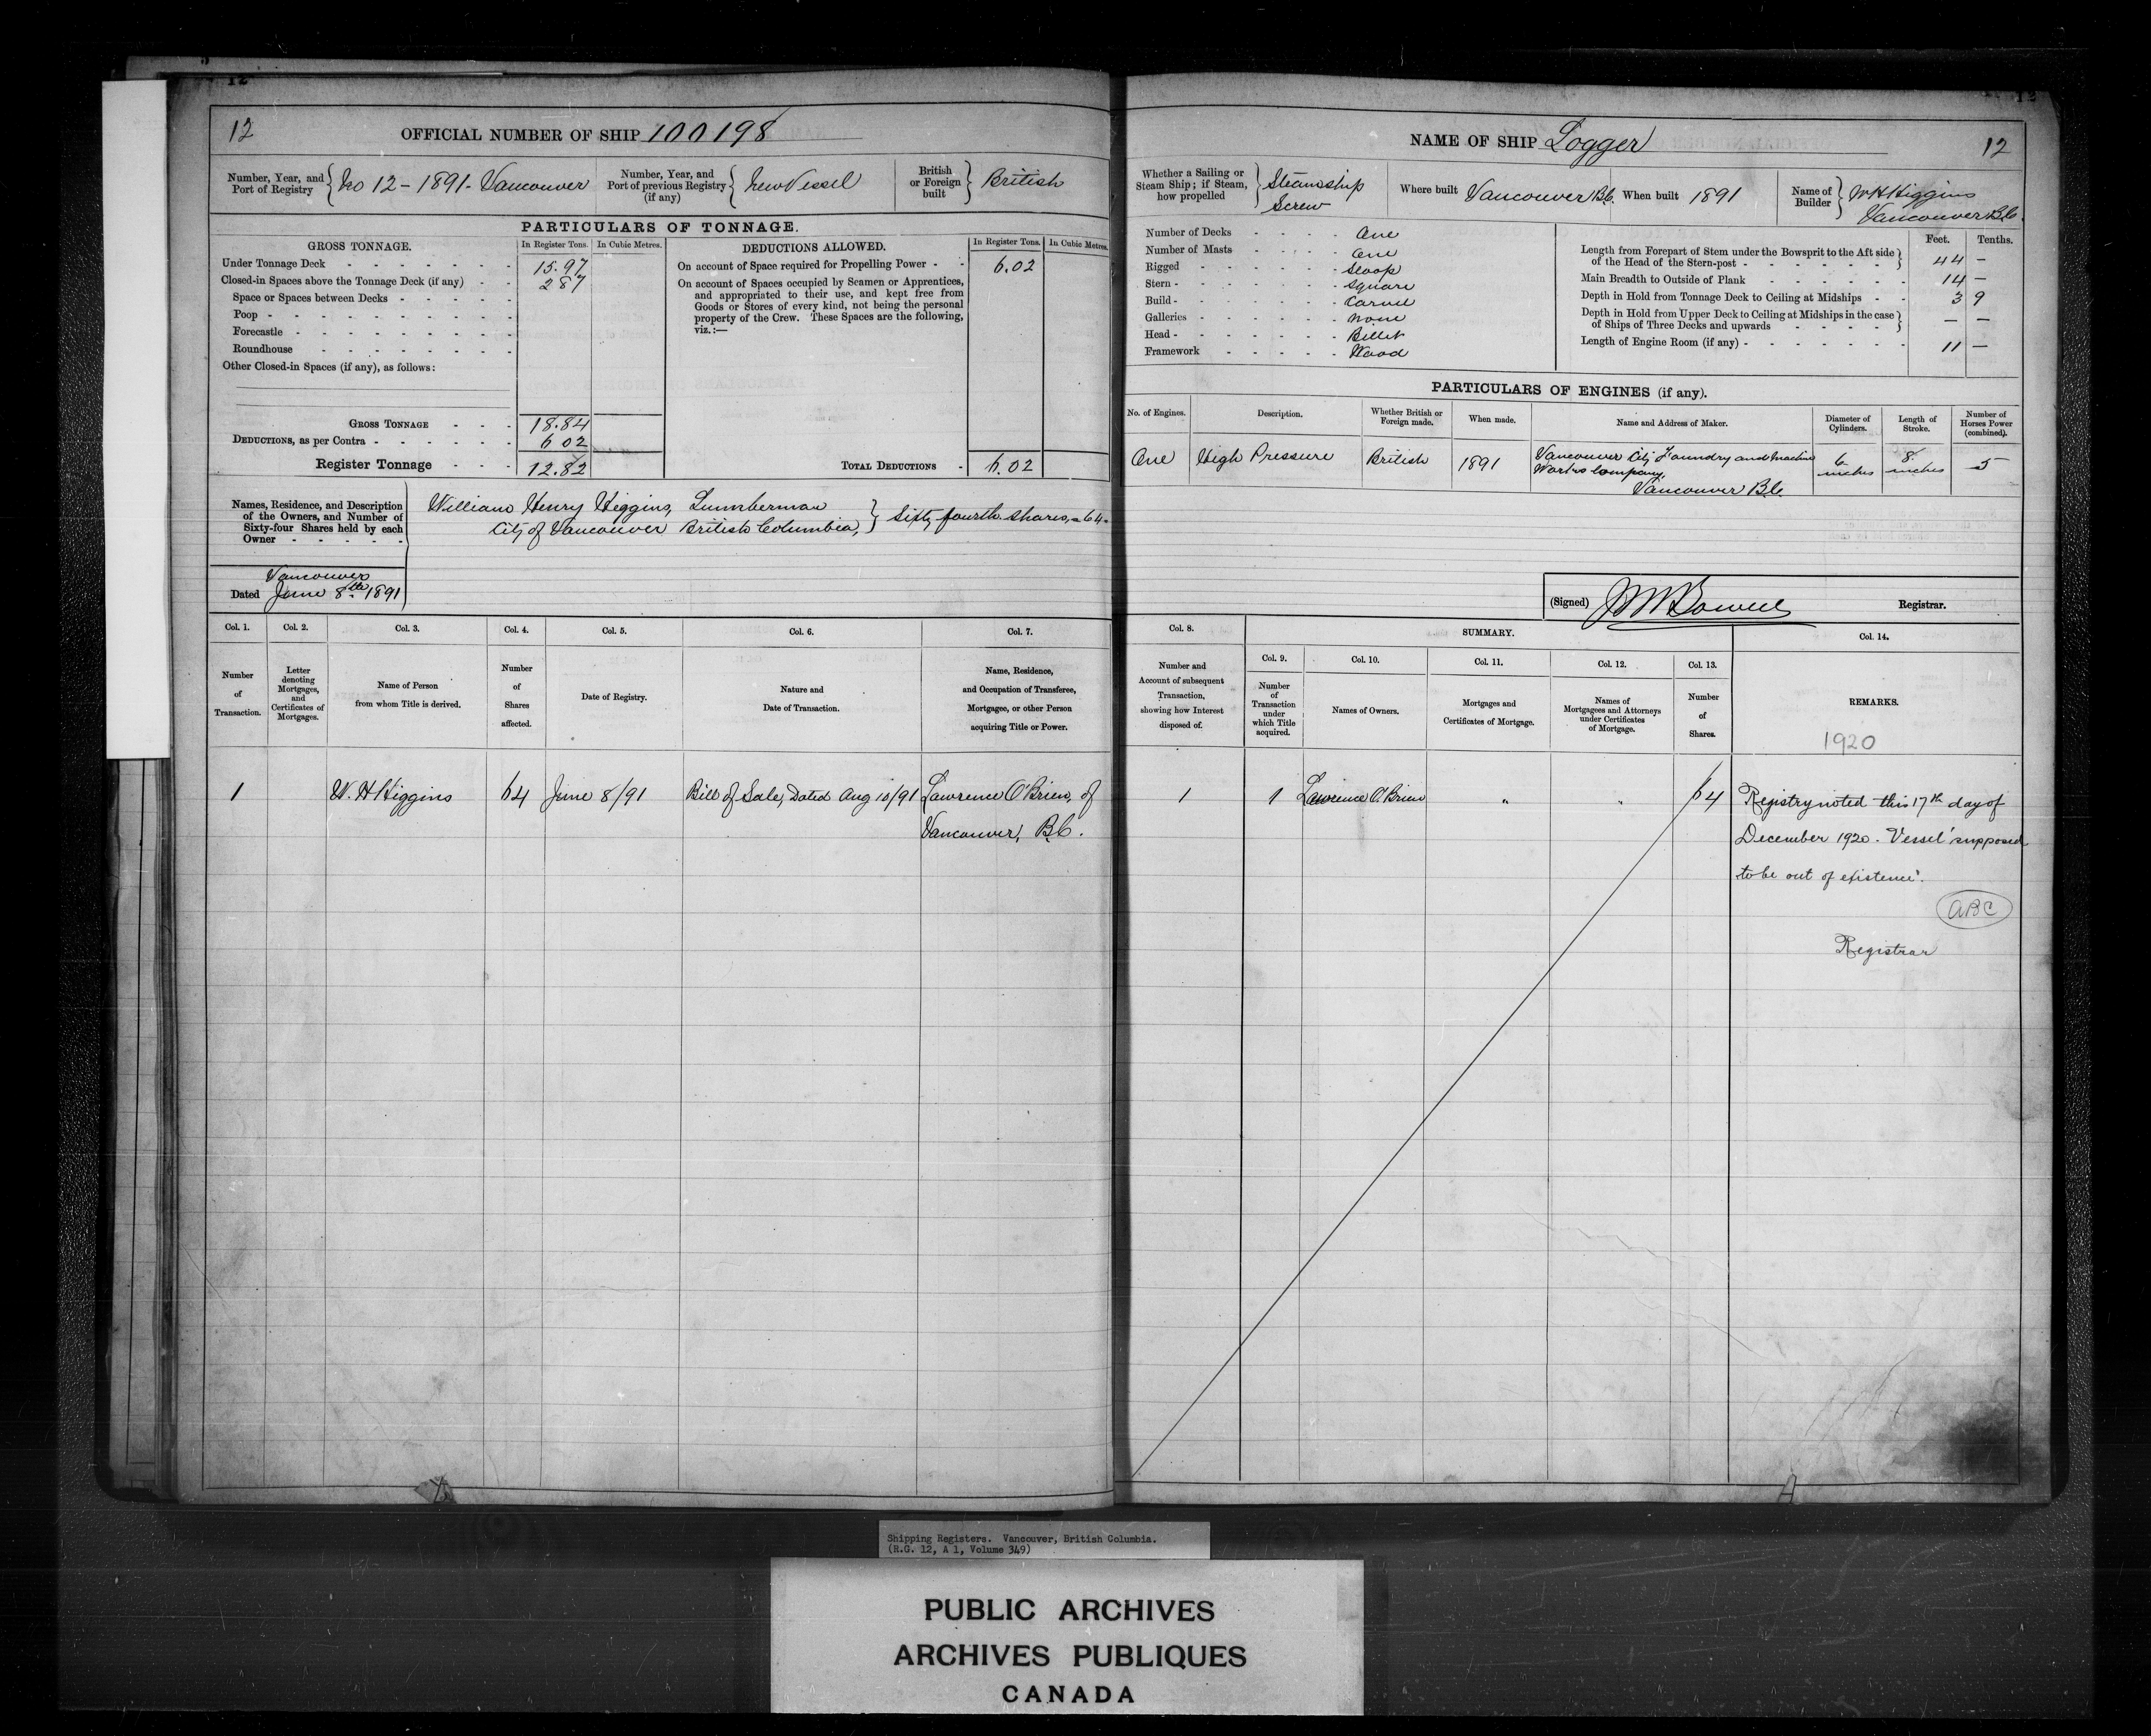 12
OFFICIAL NUMBER OF SHIP 100198
Number, Year, and Port of Registry } No 12 - 1891 - Vancouver
Number, Year, and Port of previous Registry (if any) } New Vessel
British or Foreign built } British
PARTICULARS OF TONNAGE.
GROSS TONNAGE. In Register Tons. In Cubic Metres.
Under Tonnage Deck 15.97
Closed-in Spaces above the Tonnage Deck (if any) 2 87
Space or Spaces between Decks
Poop
Forecastle
Roundhouse
Other Closed-in Spaces (if any), as follows:
GROSS TONNAGE 18.84
DEDUCTIONS, as per Contra 6 02
Register Tonnage 12.82
DEDUCTIONS ALLOWED. In Register Tons. In Cubic Metres.
On account of Space required for Propelling Power 6.02
On account of Spaces occupied by Seamen or Apprentices,
and appropriated to their use, and kept free from
Goods or Stores of every kind, not being the personal
property of the Crew. These Spaces are the following,
viz.:—
TOTAL DEDUCTIONS 6.02
Names, Residence, and Description
of the Owners, and Number of
Sixty-four Shares held by each
Owner
William Henry Higgins, Lumberman
City of Vancouver British Columbia, } Sixty fourth shares, - 64 -
Vancouver
Dated June 8th 1891
Col. 1. Col. 2. Col. 3. Col. 4. Col. 5. Col. 6. Col. 7.
Number of Transaction.
Letter denoting Mortgages, and Certificates of Mortgages.
Name of Person from whom Title is derived.
Number of Shares affected.
Date of Registry.
Nature and Date of Transaction.
Name, Residence, and Occupation of Transferee, Mortgagee, or other Person acquiring Title or Power.
1 W. H Higgins 64 June 8/91 Bill of Sale, Dated Aug 10/91 Lawrence O'Brien, of
Vancouver, B.C.
NAME OF SHIP Logger
12
Whether a Sailing or Steam Ship; if Steam, how propelled } Steamship Screw
Where built Vancouver B.C.
When built 1891
Name of Builder } W H Higgins Vancouver B.C.
Number of Decks One
Number of Masts One
Rigged Sloop
Stern Square
Build Carvel
Galleries None
Head Billet
Framework Wood
Feet. Tenths.
Length from Forepart of Stem under the Bowsprit to the Aft side
of the Head of the Stern-post 44 —
Main Breadth to Outside of Plank 14 —
Depth in Hold from Tonnage Deck to Ceiling at Midships 3 9
Depth in Hold from Upper Deck to Ceiling at Midships in the case
of Ships of Three Decks and upwards — —
Length of Engine Room (if any) 11 —
PARTICULARS OF ENGINES (if any).
No. of Engines. Description. Whether British or Foreign made. When made. Name and Address of Maker. Diameter of Cylinders. Length of Stroke. Number of Horses Power (combined).
One High Pressure British 1891 Vancouver City Foundry and Machine Works Company, Vancouver B.C. 6 inches 8 inches 5
(Signed) Registrar.
Col. 8. SUMMARY. Col. 14.
Col. 9. Col. 10. Col. 11. Col. 12. Col. 13.
Number and Account of subsequent Transaction, showing how Interest disposed of.
Number of Transaction under which Title acquired.
Names of Owners.
Mortgages and Certificates of Mortgage.
Names of Mortgagees and Attorneys under Certificates of Mortgage.
Number of Shares.
REMARKS.
1920
1 1 Lawrence O'Brien " " 64 Registry noted this 17th day of
December 1920 - Vessel 'supposed
to be out of existence'.
ABC
Registrar
Shipping Registers. Vancouver, British Columbia.
(R.G. 12, A 1, Volume 349)
PUBLIC ARCHIVES
ARCHIVES PUBLIQUES
CANADA